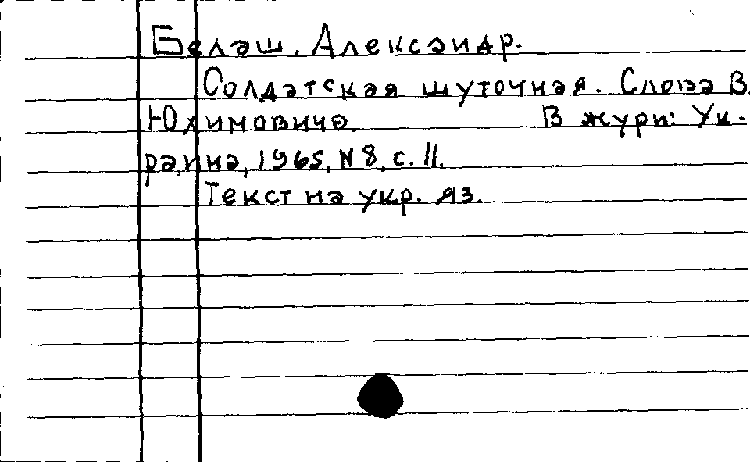 Белаш, Александр.
Солдатская шуточная. Слова В.
Юхимовича. В журн: Ук-
раина, 1965, N 8, с. 11.
Текст на укр. яз.